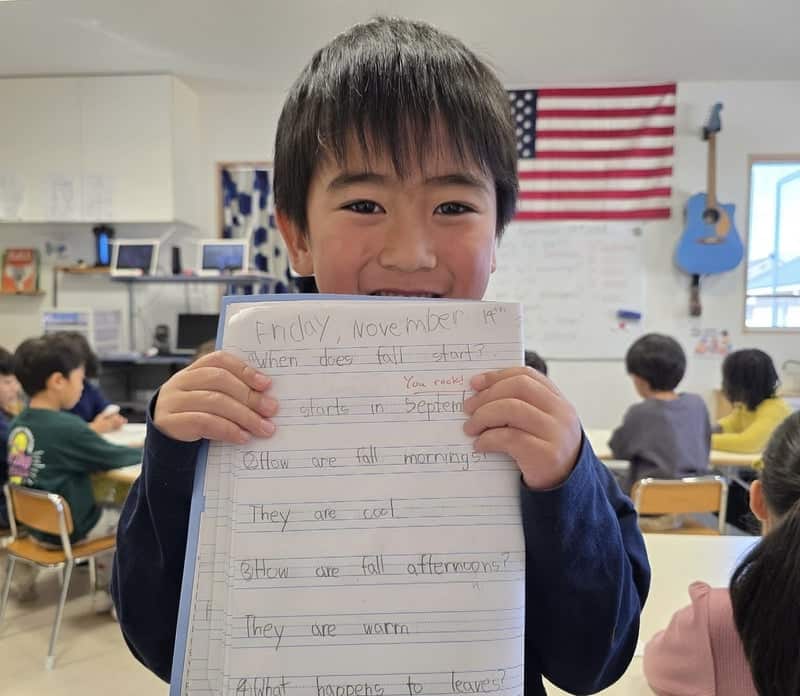 Friday, November 14th
When does fall start?
You rock!
starts in Septem
②How are fall mornings?
They are cool
③How are fall afternoons?
They are warm
④What happens to leaves?